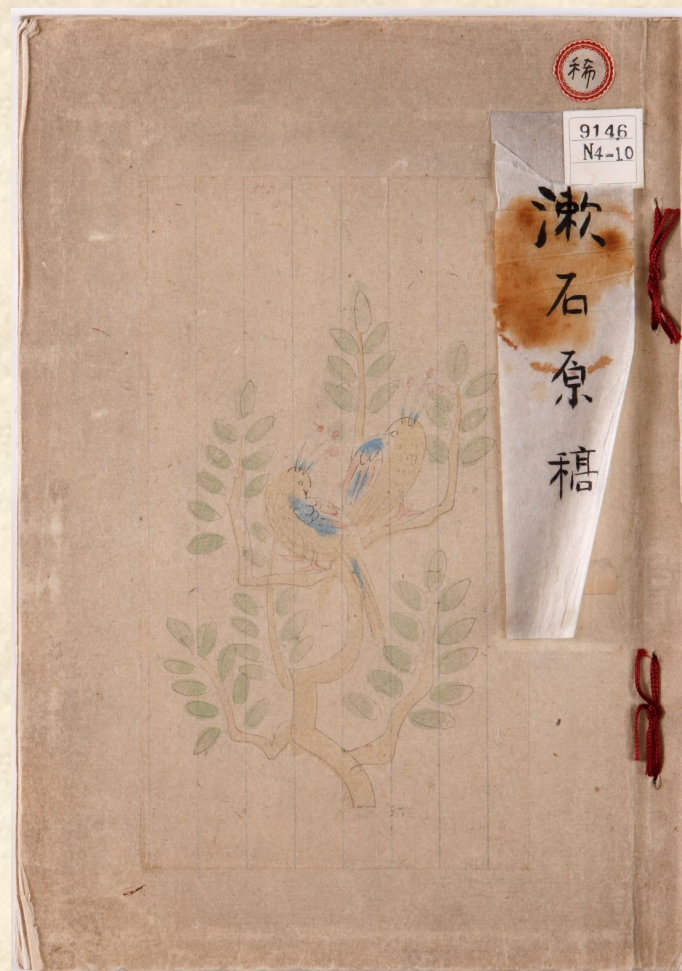 稀
9146
N4-10
漱石原稿